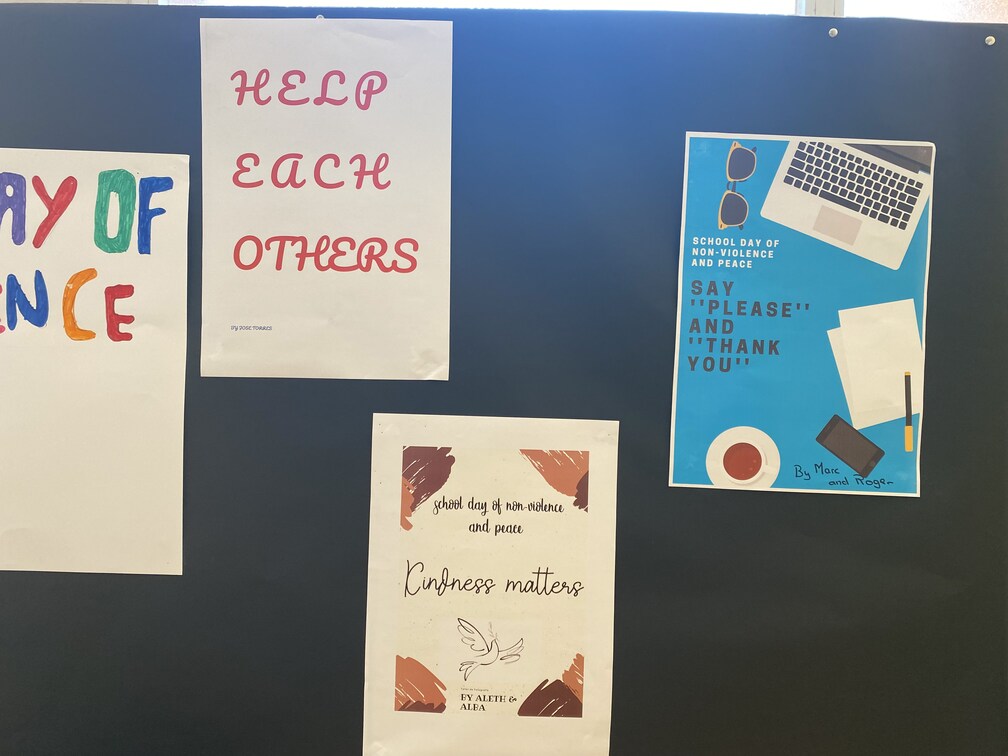 AY OF
ENCE
HELP
EACH
OTHERS
By JOSE TORRES
school day of non-violence
and peace
Kindness matters
BY ALETH &
ALBA
SCHOOL DAY OF
NON-VIOLENCE
AND PEACE
SAY
''PLEASE''
AND
''THANK
YOU''
By Marc
and Roger